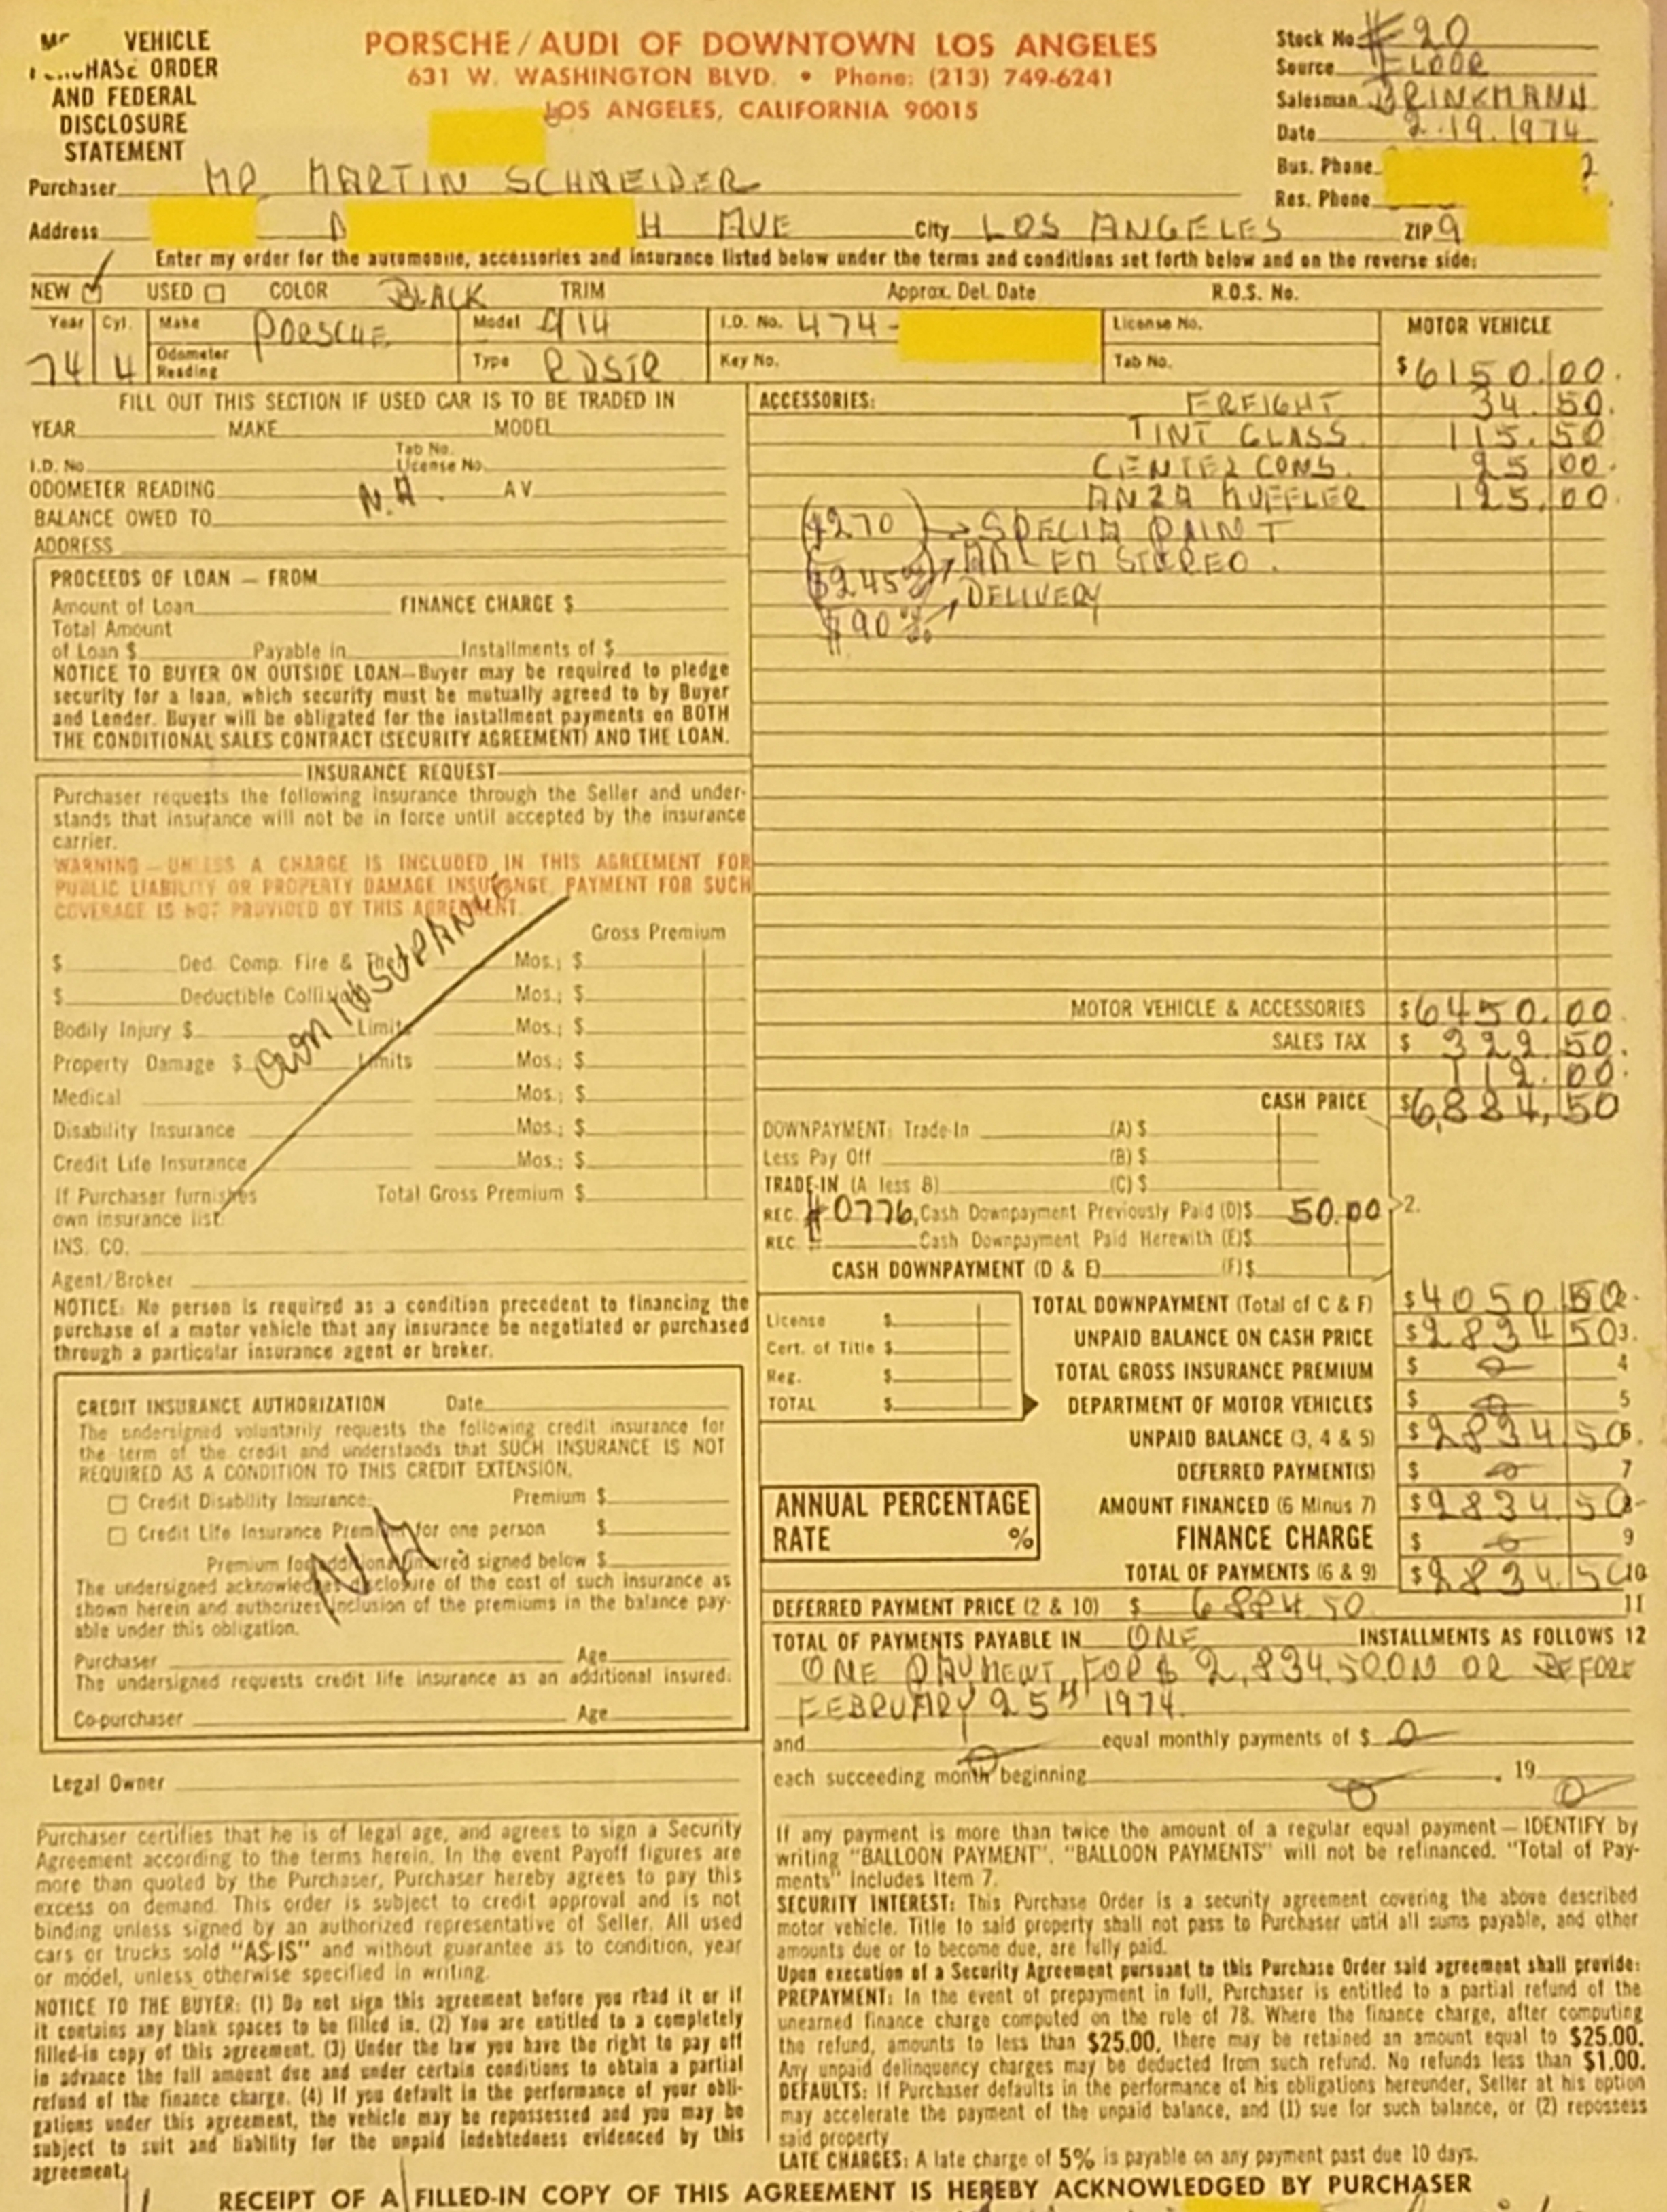 VEHICLE
PURCHASE ORDER
AND FEDERAL
DISCLOSURE
STATEMENT
PORSCHE/AUDI OF DOWNTOWN LOS ANGELES
631 W. WASHINGTON BLVD. • Phone: (213) 749-6241
LOS ANGELES, CALIFORNIA 90015
Stock No. #20
Source FLOOR
Salesman BRINKMANN
Date 2.19.1974
Bus. Phone 2
Res. Phone
Purchaser MR. MARTIN SCHNEIDER
Address H AVE City LOS ANGELES ZIP 9
Enter my order for the automobile, accessories and insurance listed below under the terms and conditions set forth below and on the reverse side:
NEW USED COLOR BLACK TRIM Approx. Del. Date R.O.S. No.
Year 74 Cyl. 4 Make PORSCHE Model 914 I.D. No. 474- License No. MOTOR VEHICLE
Odometer Reading Type RDSTR Key No. Tab No. $6150.00
FILL OUT THIS SECTION IF USED CAR IS TO BE TRADED IN
YEAR MAKE MODEL
Tab No.
I.D. No. License No.
ODOMETER READING N.A. AV
BALANCE OWED TO
ADDRESS
ACCESSORIES: FREIGHT 34.50
TINT GLASS 115.50
CENTER CONS. 25.00
ANZA MUFFLER 125.00
($270) → SPECIA PAINT
($245) → AM-FM STEREO.
($90 → DELIVERY
PROCEEDS OF LOAN — FROM
Amount of Loan FINANCE CHARGE $
Total Amount
of Loan $ Payable in Installments of $
NOTICE TO BUYER ON OUTSIDE LOAN—Buyer may be required to pledge
security for a loan, which security must be mutually agreed to by Buyer
and Lender. Buyer will be obligated for the installment payments on BOTH
THE CONDITIONAL SALES CONTRACT (SECURITY AGREEMENT) AND THE LOAN.
INSURANCE REQUEST
Purchaser requests the following insurance through the Seller and under-
stands that insurance will not be in force until accepted by the insurance
carrier.
WARNING — UNLESS A CHARGE IS INCLUDED IN THIS AGREEMENT FOR
PUBLIC LIABILITY OR PROPERTY DAMAGE INSURANCE, PAYMENT FOR SUCH
COVERAGE IS NOT PROVIDED BY THIS AGREEMENT.
Gross Premium
$ Ded. Comp. Fire & Theft Mos.; $
$ Deductible Collision Mos.; $
Bodily Injury $ Limits Mos.; $
Property Damage $ Limits Mos.; $
Medical Mos.; $
Disability Insurance Mos.; $
Credit Life Insurance Mos.; $
OWN INSURANCE
If Purchaser furnishes Total Gross Premium $
own insurance list:
INS. CO.
Agent/Broker
NOTICE: No person is required as a condition precedent to financing the
purchase of a motor vehicle that any insurance be negotiated or purchased
through a particular insurance agent or broker.
CREDIT INSURANCE AUTHORIZATION Date
The undersigned voluntarily requests the following credit insurance for
the term of the credit and understands that SUCH INSURANCE IS NOT
REQUIRED AS A CONDITION TO THIS CREDIT EXTENSION.
Credit Disability Insurance: Premium $
Credit Life Insurance Premium for one person $
Premium for additional insured signed below $
N.A.
The undersigned acknowledges disclosure of the cost of such insurance as
shown herein and authorizes inclusion of the premiums in the balance pay-
able under this obligation.
Purchaser Age
The undersigned requests credit life insurance as an additional insured:
Co-purchaser Age
Legal Owner
MOTOR VEHICLE & ACCESSORIES $6450.00
SALES TAX $ 322.50
112.00
CASH PRICE $6,884.50
DOWNPAYMENT: Trade-In (A) $
Less Pay Off (B) $
TRADE-IN (A less B) (C) $
REC. #0776, Cash Downpayment Previously Paid (D)$ 50.00 2.
REC. # Cash Downpayment Paid Herewith (E)$
CASH DOWNPAYMENT (D & E) (F) $
License $
Cert. of Title $
Reg. $
TOTAL $
TOTAL DOWNPAYMENT (Total of C & F) $4050.
UNPAID BALANCE ON CASH PRICE $2834.50 3.
TOTAL GROSS INSURANCE PREMIUM $ 0 4
DEPARTMENT OF MOTOR VEHICLES $ 0 5
UNPAID BALANCE (3, 4 & 5) $2834.50 6.
DEFERRED PAYMENT(S) $ 0 7
AMOUNT FINANCED (6 Minus 7) $2834.50 8
ANNUAL PERCENTAGE
RATE %
FINANCE CHARGE $ 0 9
TOTAL OF PAYMENTS (6 & 9) $2834.50 10
DEFERRED PAYMENT PRICE (2 & 10) $ 6884.50 11
TOTAL OF PAYMENTS PAYABLE IN ONE INSTALLMENTS AS FOLLOWS 12
ONE PAYMENT, FOR $ 2,834.50 ON OR BEFORE
FEBRUARY 25TH 1974.
and 0 equal monthly payments of $ 0
each succeeding month beginning 0, 19 0
Purchaser certifies that he is of legal age, and agrees to sign a Security
Agreement according to the terms herein. In the event Payoff figures are
more than quoted by the Purchaser, Purchaser hereby agrees to pay this
excess on demand. This order is subject to credit approval and is not
binding unless signed by an authorized representative of Seller. All used
cars or trucks sold "AS-IS" and without guarantee as to condition, year
or model, unless otherwise specified in writing.
NOTICE TO THE BUYER: (1) Do not sign this agreement before you read it or if
it contains any blank spaces to be filled in. (2) You are entitled to a completely
filled-in copy of this agreement. (3) Under the law you have the right to pay off
in advance the full amount due and under certain conditions to obtain a partial
refund of the finance charge. (4) If you default in the performance of your obli-
gations under this agreement, the vehicle may be repossessed and you may be
subject to suit and liability for the unpaid indebtedness evidenced by this
agreement.
If any payment is more than twice the amount of a regular equal payment — IDENTIFY by
writing "BALLOON PAYMENT". "BALLOON PAYMENTS" will not be refinanced. "Total of Pay-
ments" includes Item 7.
SECURITY INTEREST: This Purchase Order is a security agreement covering the above described
motor vehicle. Title to said property shall not pass to Purchaser until all sums payable, and other
amounts due or to become due, are fully paid.
Upon execution of a Security Agreement pursuant to this Purchase Order said agreement shall provide:
PREPAYMENT: In the event of prepayment in full, Purchaser is entitled to a partial refund of the
unearned finance charge computed on the rule of 78. Where the finance charge, after computing
the refund, amounts to less than $25.00, there may be retained an amount equal to $25.00.
Any unpaid delinquency charges may be deducted from such refund. No refunds less than $1.00.
DEFAULTS: If Purchaser defaults in the performance of his obligations hereunder, Seller at his option
may accelerate the payment of the unpaid balance, and (1) sue for such balance, or (2) repossess
said property
LATE CHARGES: A late charge of 5% is payable on any payment past due 10 days.
RECEIPT OF A FILLED-IN COPY OF THIS AGREEMENT IS HEREBY ACKNOWLEDGED BY PURCHASER